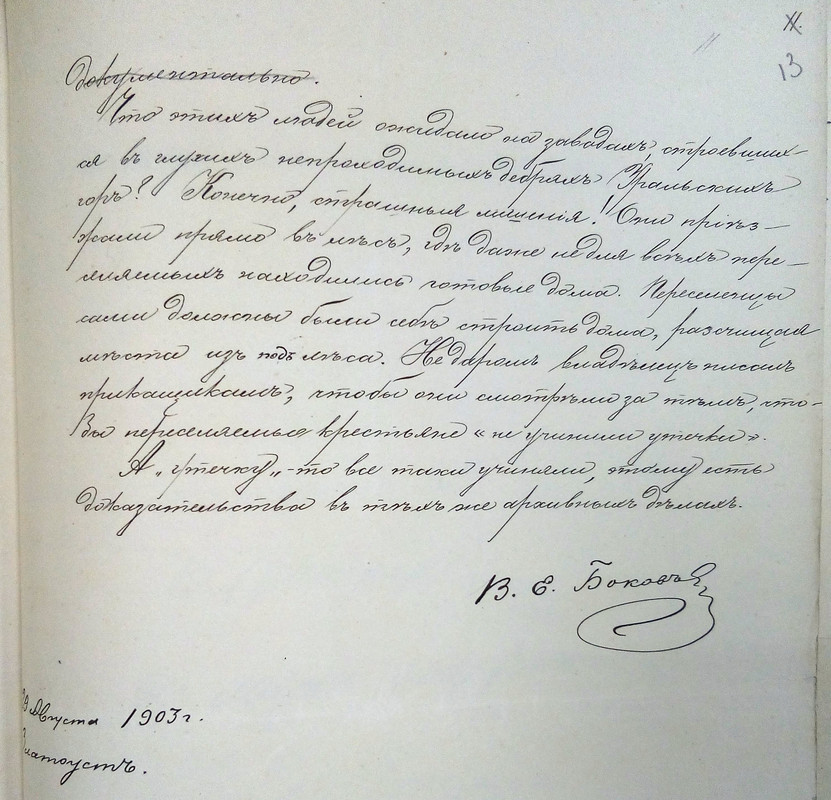 13
документально.
Что этихъ людей ожидало на заводахъ, строевших-
ся въ глухихъ непроходимыхъ дебряхъ Уральскихъ
горъ? Конечно, страшныя лишенія! Они пріѣз-
жали прямо въ лѣсъ, гдѣ даже не для всѣхъ пере-
селяемыхъ находились готовые дома. Переселенцы
сами должны были себѣ строить дома, разчищая
мѣста изъ подъ лѣса. Не даромъ владѣлецъ писалъ
прикащикамъ, чтобы они смотрѣли за тѣмъ, что-
бы переселяемые крестьяне «не учинили утечки».
А „утечку„-то все таки учиняли, этому есть
доказательства въ тѣхъ же архивныхъ дѣлахъ.
В. Е. Боковъ
Августа 1903 г.
Златоустъ.